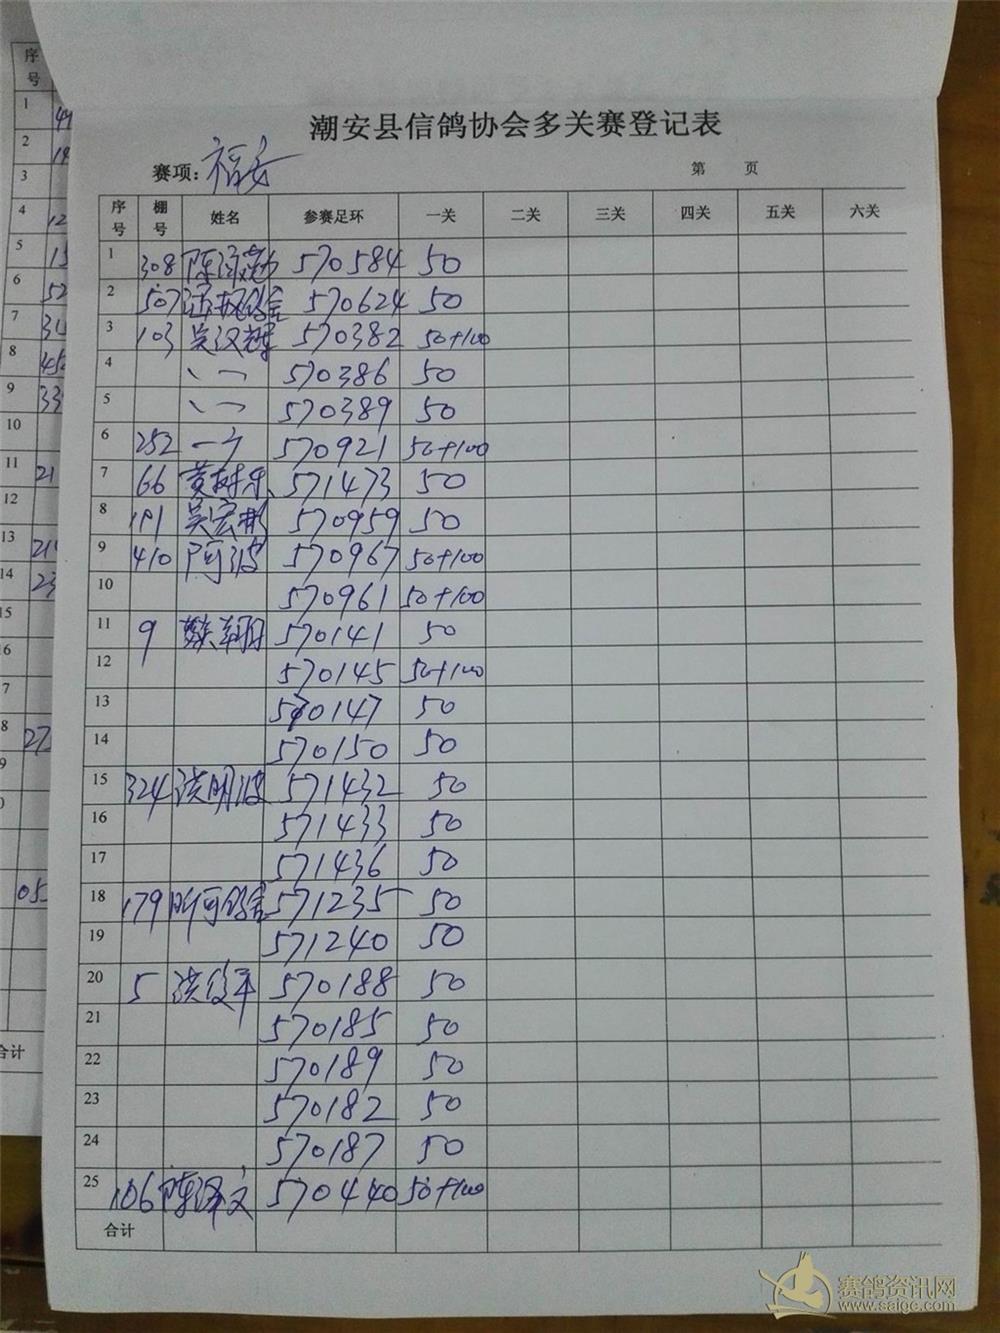 潮安县信鸽协会多关赛登记表
赛项: 福安 第 页
序号 棚号 姓名 参赛足环 一关 二关 三关 四关 五关 六关
1 308 570584 50
2 507 570624 50
3 103 吴汉辉 570382 50+100
4 570386 50
5 570389 50
6 252 570921 50+100
7 66 黄树乐 571473 50
8 191 吴宏彬 570959 50
9 410 阿波 570967 50+100
10 570961 50+100
11 9 570141 50
12 570145 50+100
13 570147 50
14 570150 50
15 324 洪明波 571432 50
16 571433 50
17 571436 50
18 179 571235 50
19 571240 50
20 5 洪俊平 570188 50
21 570185 50
22 570189 50
23 570182 50
24 570187 50
25 106 陈泽文 570440 50+100
合计
赛鸽资讯网
www.saigc.com